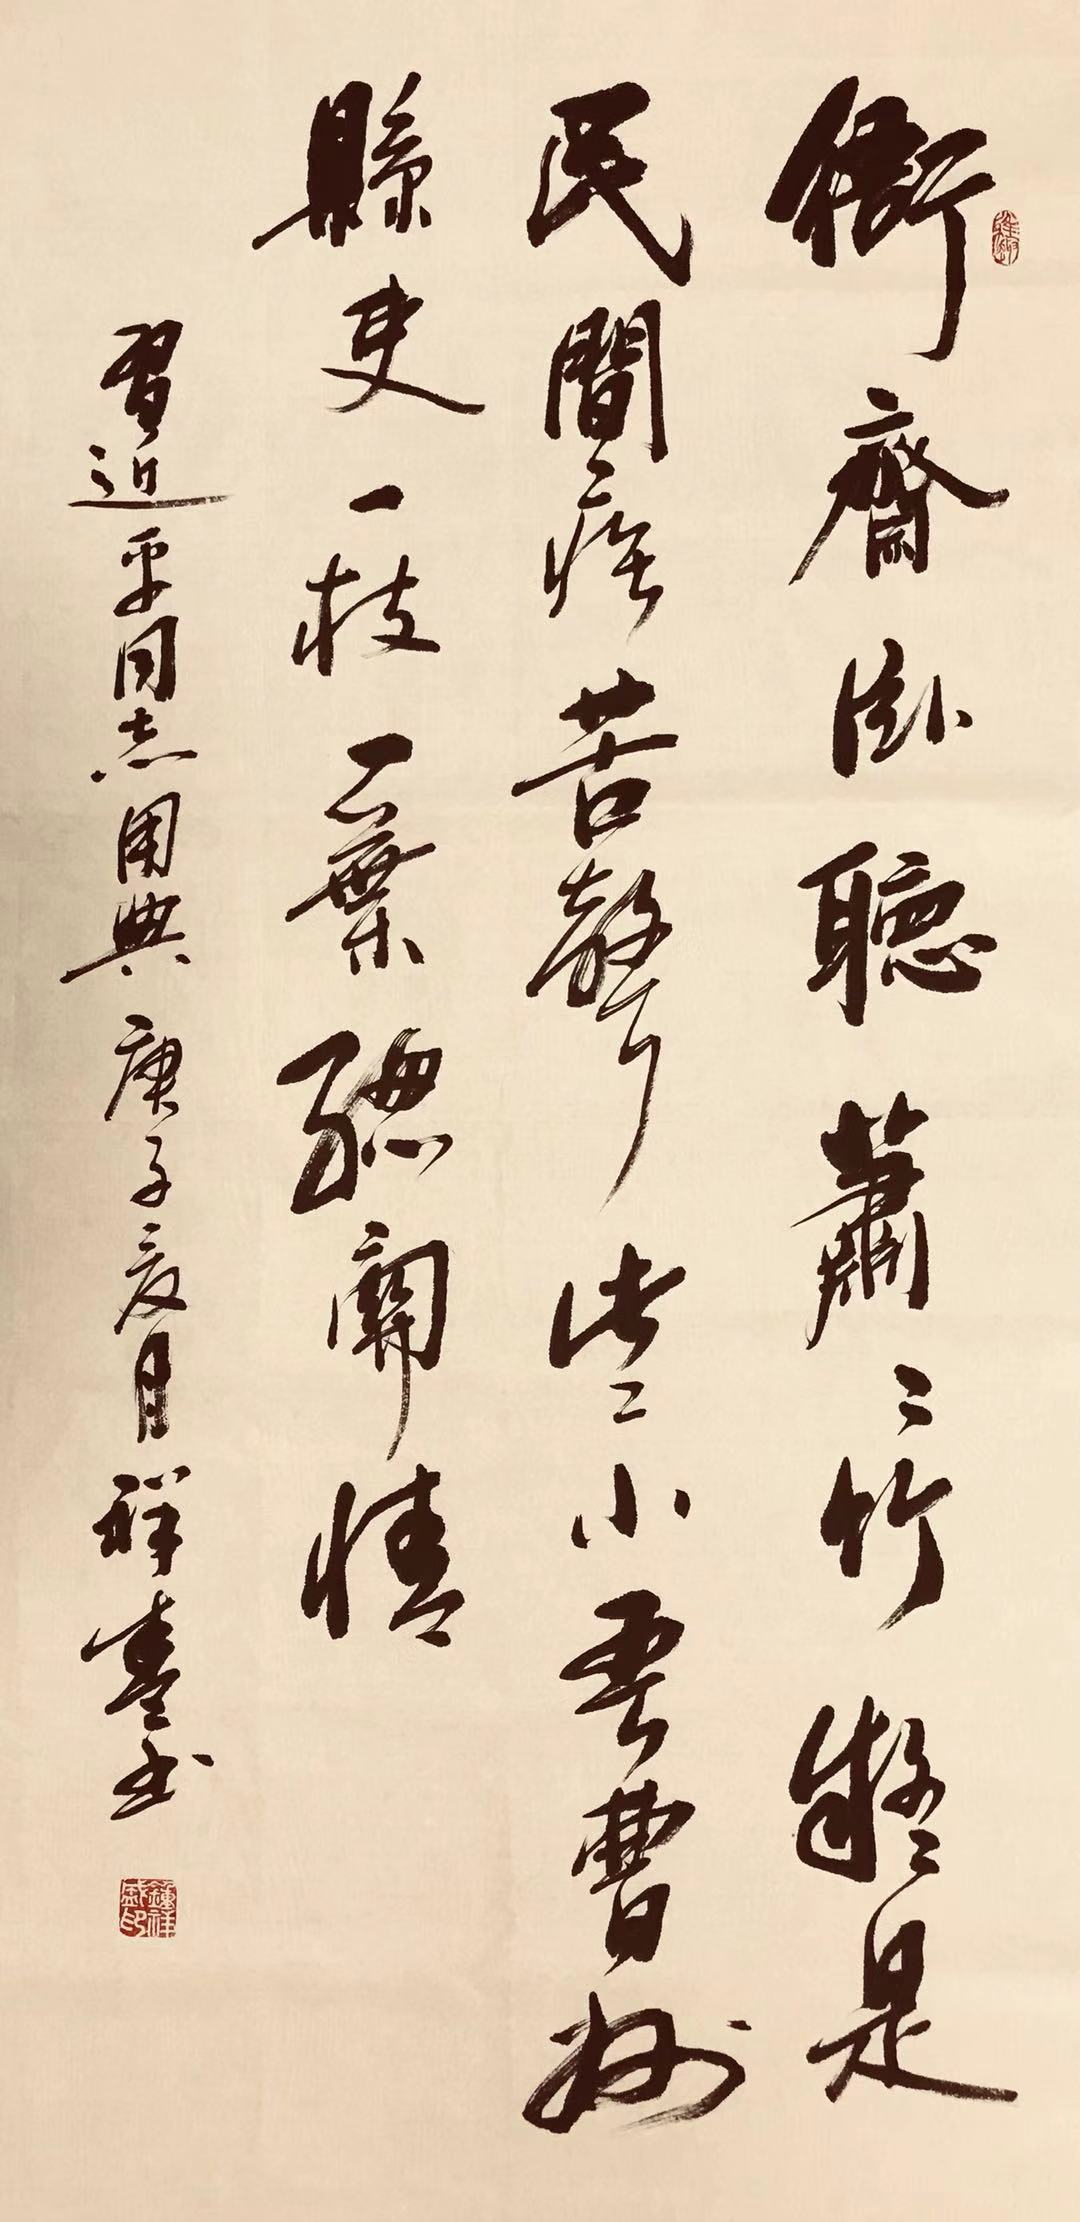 衙齋卧聽蕭〻竹疑是
民間疾苦聲些〻小吾曹州
縣吏一枝一葉總關情
習近平同志用典 庚子夏月 祥臺书